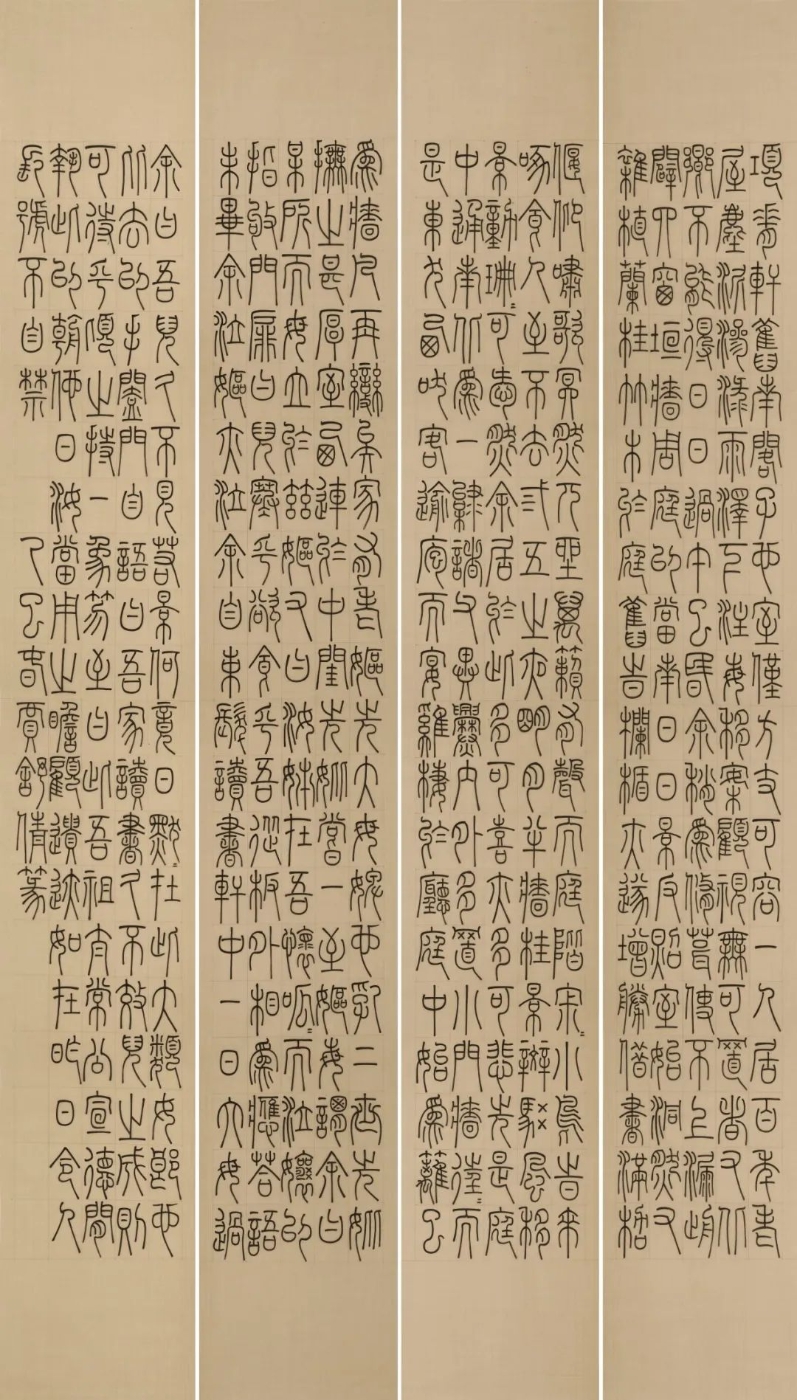 項脊軒舊南閣子也室僅方丈可容一人居百年老
屋塵泥滲漉雨澤下注每移案顧視無可置者又北
鄉不能得日日過午已昏余稍為修葺使不上漏前
闢四窗垣牆周庭以當南日日景反照室始洞然又
雜植蘭桂竹木於庭舊旹欄楯亦遂增勝借書滿架
偃仰嘯歌冥然兀坐萬籟有聲而庭階寂〻小鳥旹來
啄食人至不去弎五之夜明月半牆桂景辬駁風移
景動珊〻可愛然余居於此多可喜亦多可悲先是庭
中通南北為一迨諸父異爨內外多置小門牆往〻而
是東犬西吠客逾庖而宴雞棲於廳庭中始為籬已
為牆凡再變矣家有老嫗先大母婢也乳二世先妣
撫之甚厚室西連於中閨先妣嘗一至嫗每謂余曰
某所而母立於茲嫗又曰汝姊在吾懷呱〻而泣孃以
指敂門扉曰兒寒乎欲食乎吾從板外相為應答語
未畢余泣嫗亦泣余自束髮讀書軒中一日大母過
余曰吾兒久不見若景何竟日默〻在此大類女郎也
比去以手闔門自語曰吾家讀書久不效兒之成則
可待乎頃之持一象笏至曰此吾祖太常公宣德間
執此以朝他日汝當用之瞻顧遺跡如在昨日令人
長號不自禁 乙巳春賈舒倩篆